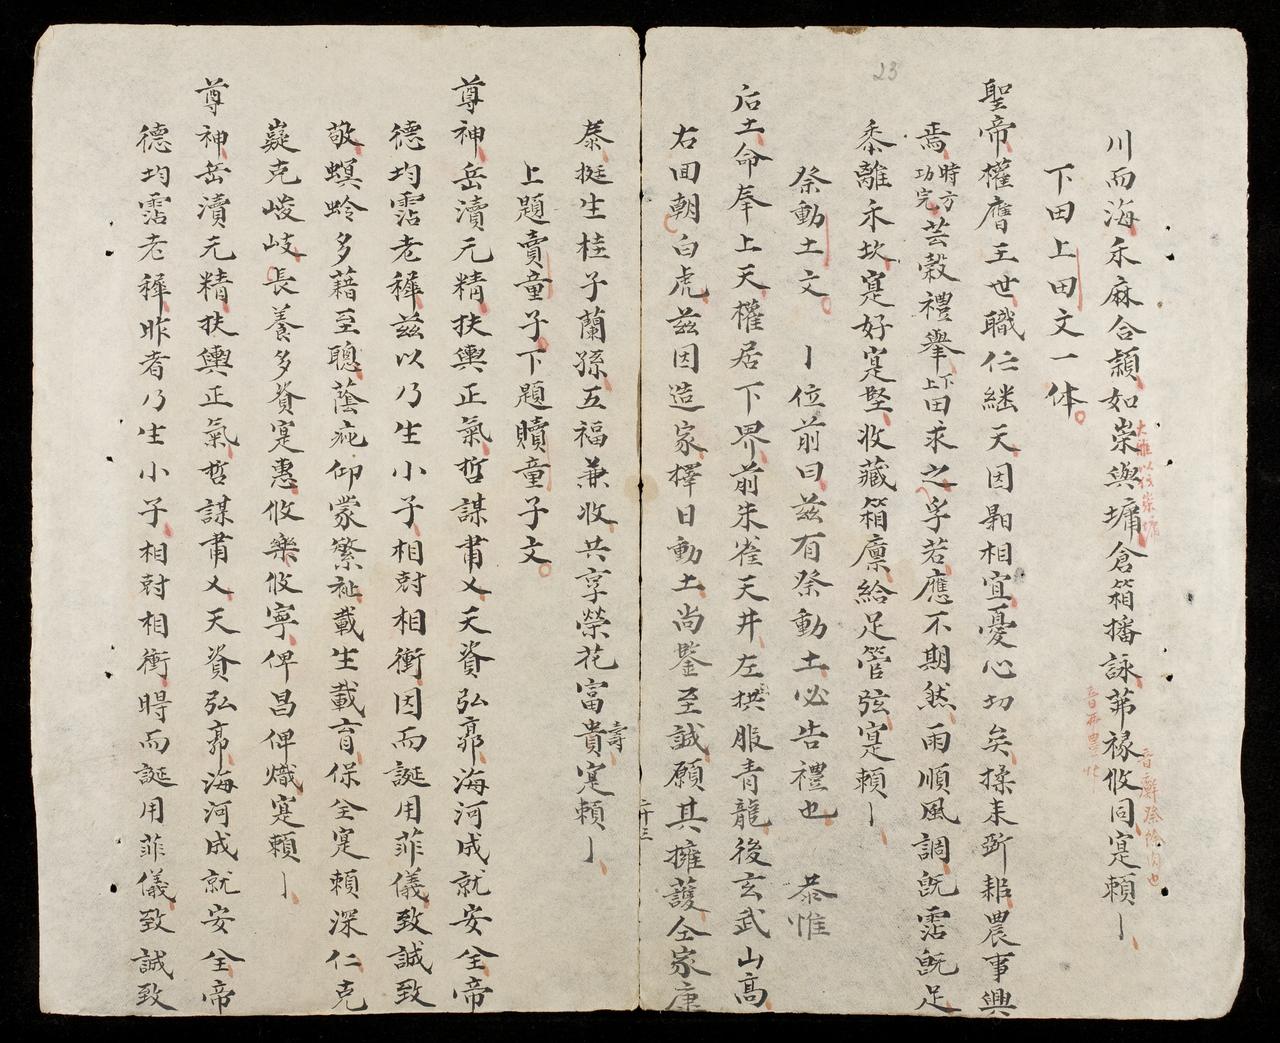 23
川而海禾麻合穎如崇與墉倉箱播詠茀祿攸同寔賴〡
下田上田文一体
聖帝權膺王世職仁継天因㫷相宜憂心切矣揉耒斵耜農事興
焉時方功完芸穀禮舉上下田求之孚若應不期然雨順風調旣霑旣足
黍離禾坎寔好寔堅收藏箱廪給足管弦寔賴〡
祭動土文　〡位前曰兹有祭動土必告禮也　恭惟
后土命奉上天權居下界前朱雀天井左拱服青龍後玄武山高
右囬朝白虎兹因造家擇日動土尚鑒至誠願其擁護仝家康
二十三
泰挺生桂子蘭孫五福兼收共享榮花富貴壽寔賴〡
上題賣童子下題贖童子文
尊神岳瀆元精扶輿正氣哲謀肅乂天資弘郭海河成就安全帝
德均霑老穉兹以乃生小子相尅相衝因而誕用菲儀致誠致
敬螟蛉多藉至聰蔭庇仰蒙繁祉載生載育保全寔賴深仁克
嶷克峻岐長養多資寔惠攸樂攸寧俾昌俾熾寔賴〡
尊神岳瀆元精扶輿正氣哲謀肅乂天資弘郭海河成就安全帝
德均霑老穉昨者乃生小子相尅相衝㫷而誕用菲儀致誠致